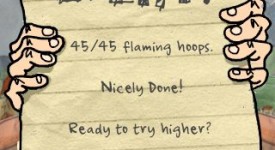 45/45 flaming hoops.
Nicely Done!
Ready to try higher?